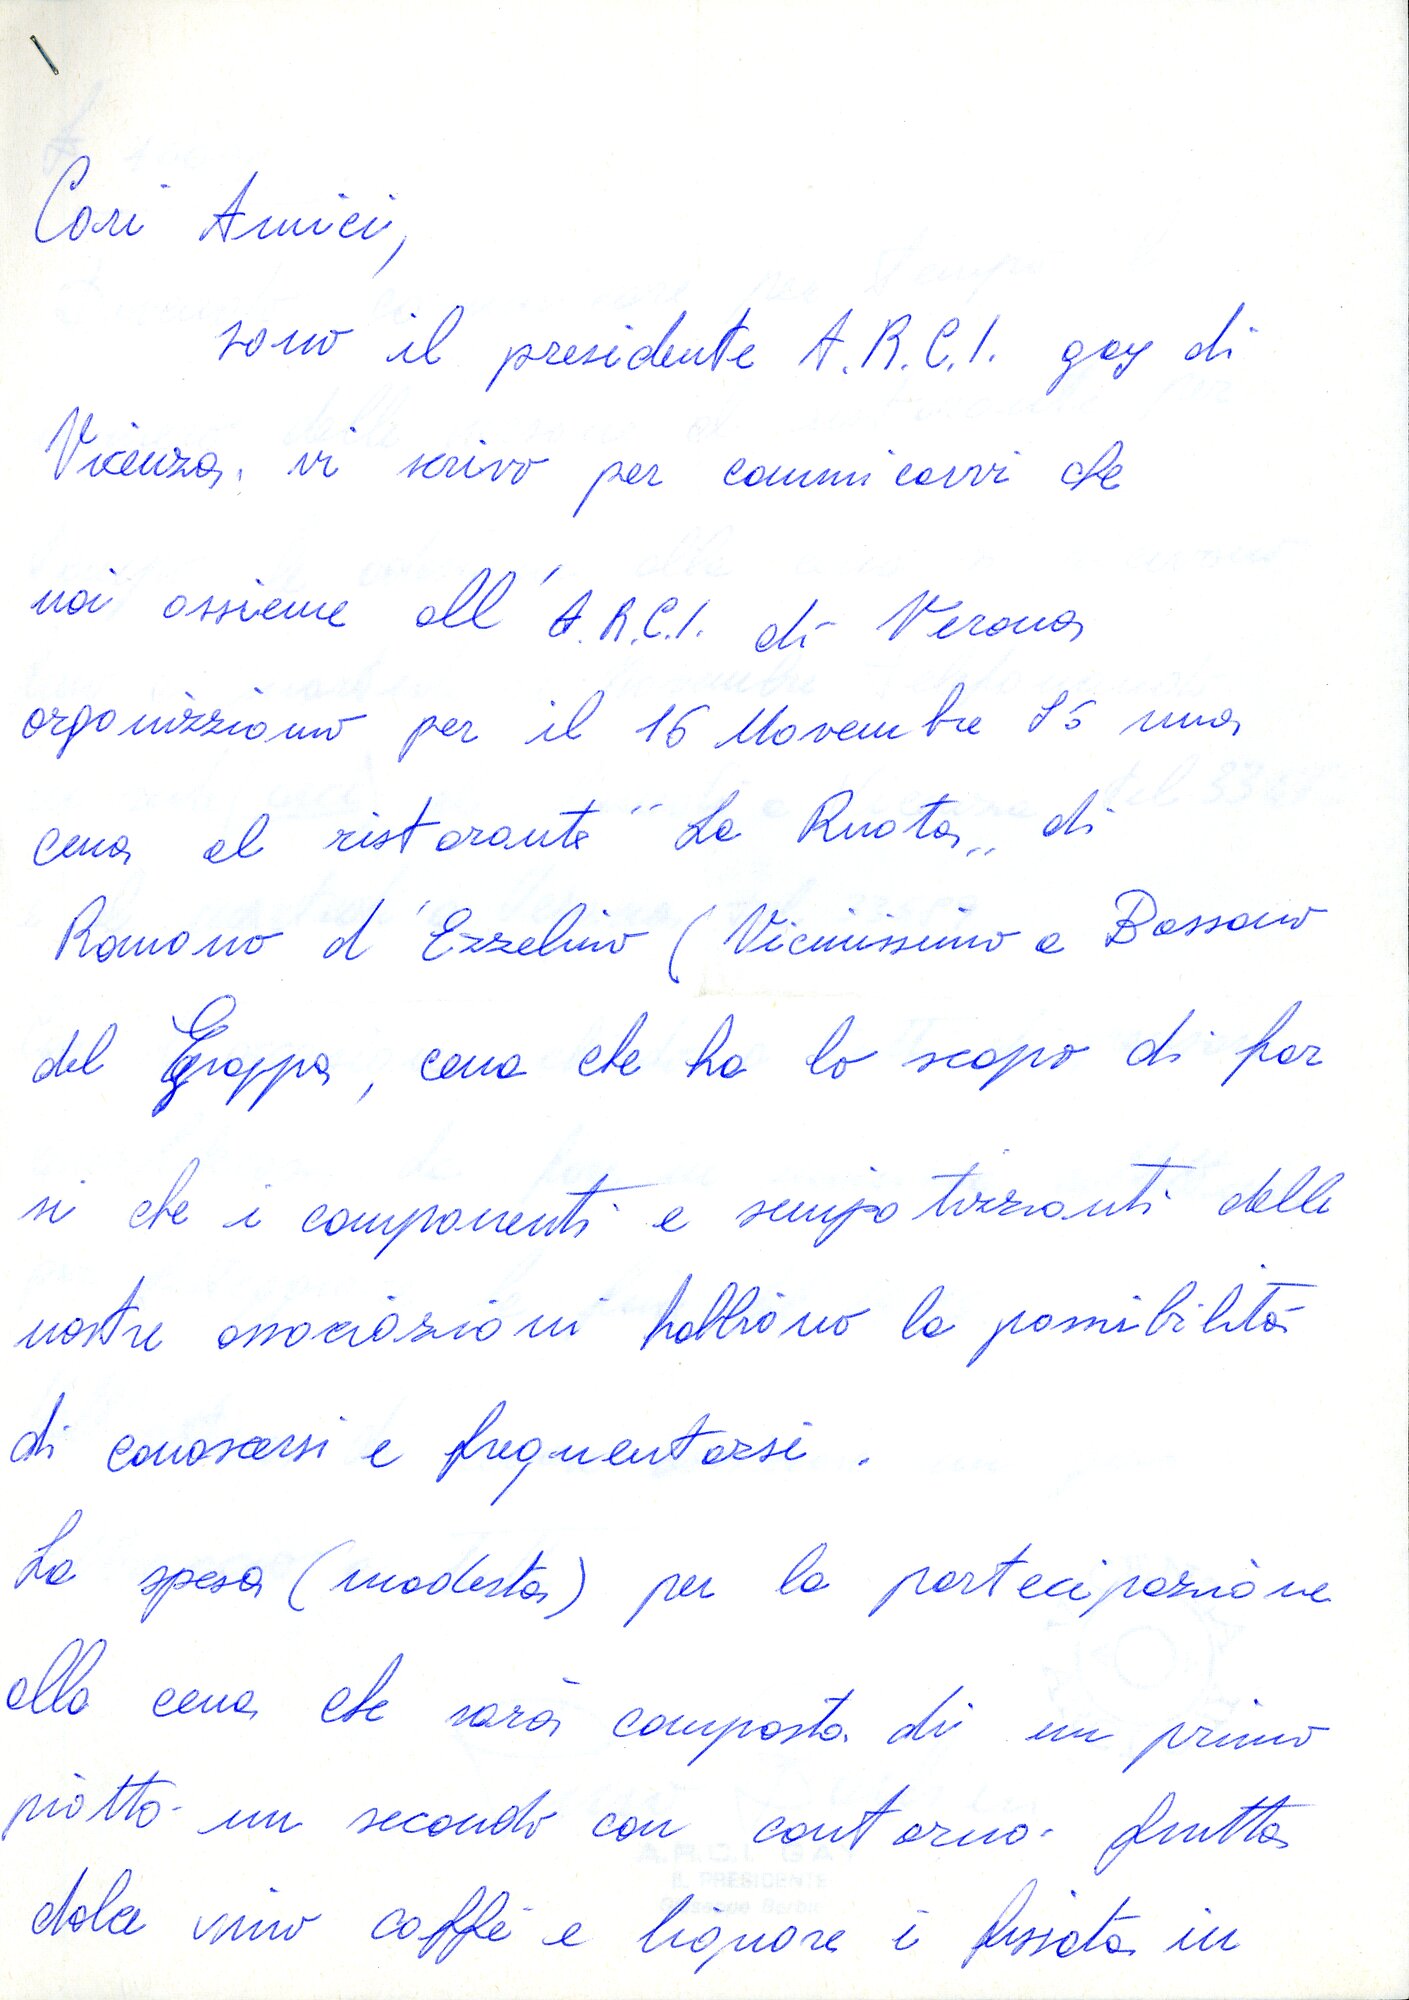 Cari Amici,
sono il presidente A.R.C.I. gay di
Vicenza. vi scrivo per comunicarvi che
noi assieme all'A.R.C.I. di Verona
organizziamo per il 16 Novembre 85 una
cena al ristorante "La Ruota" di
Romano d'Ezzelino (Vicinissimo a Bassano
del Grappa, cena che ha lo scopo di far
si che i componenti e simpatizzanti delle
nostre associazioni habbiano la possibilità
di conoscersi e frequentarsi.
La spesa (modesta) per la partecipazione
alla cena che sarà composta di un primo
piatto- un secondo con contorno- frutta
dolce vino caffè e liquore è fissata in
A.R.C.I. GAY
IL PRESIDENTE